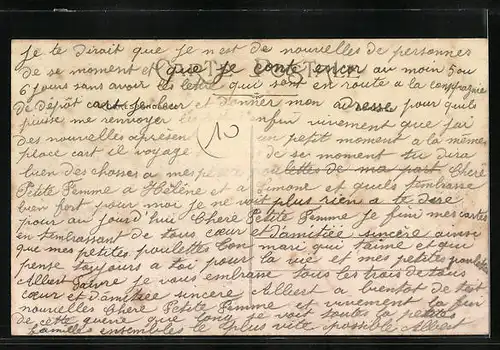 Je te dirait que je nest de nouvelles de personnes
de se moment et que je conte encor au moin 5 ou
6 jours sans avoir les lettre qui sont en route a la compagnie
de dépôt et donner mon adresse pour quils
puisse me renvoyer les enfin vivement que jai
des nouvelles un petit moment a la même
place cart il voyage de se moment tu dira
bien des chosses a mes poulettes de ma part Cheré
Petite Femme a Hélène et a Simone et quels tembrasse
bien fort pour moi je ne voit plus rien a te dire
pour au jourd'hui Cheré Petite Femme je fini mes cartes
en tembrassant de tous cœur et d'amitiée sincère ainsi
que mes petites poulettes ton mari qui t'aime et qui
pense toujours a toi pour la vie et mes petites poulettes
Albert je vous embrasse tous les trois de tous
cœur et d'amitiée sincere Albert a bientot de tait
nouvelles Cheré Petite Femme et vivement la fin
de cette guerre que lon se voit toutes la petites
familles ensembles le plus vite possible Albert
10
CARTE POSTALE